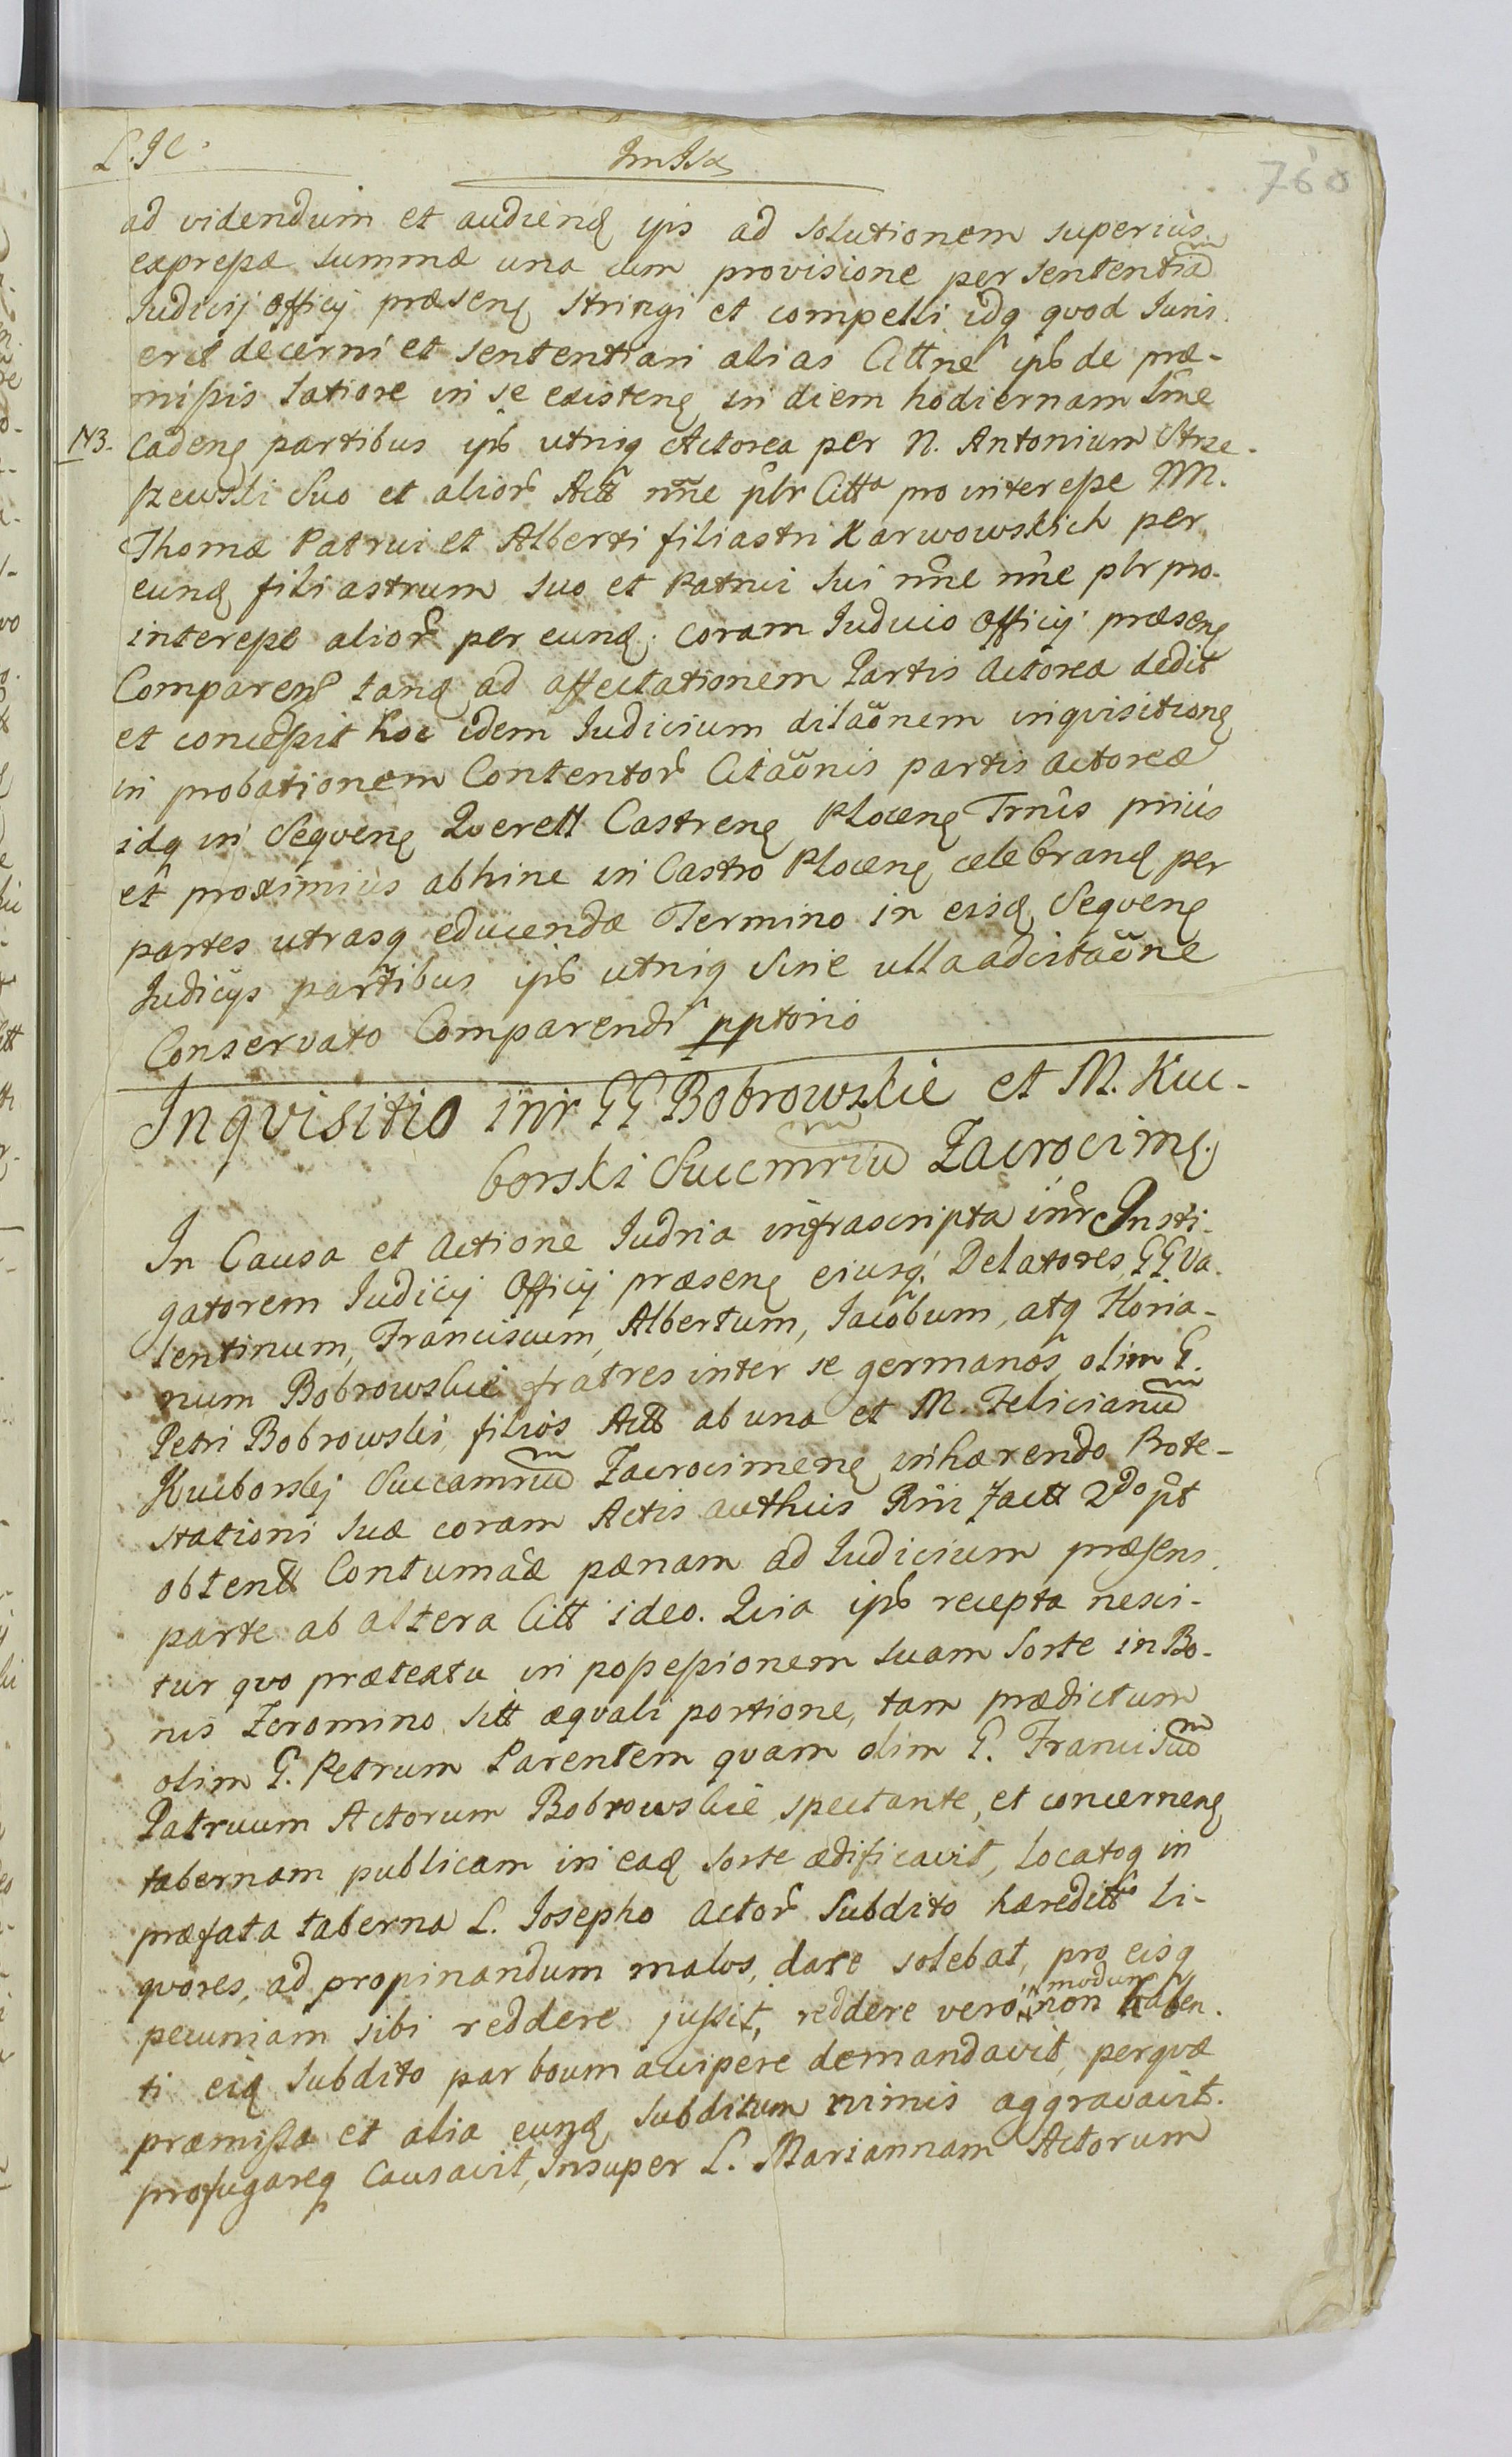 760
ad videndum et audiend ips ad solutionem superius
expressæ summæ una cum provisione per sententiam
Judicij Officij præsens stringi et compelli idq quod Juris
erit decerni et sententiari alias Cittne ipso de præ-
missis latiore in se existens in diem hodiernam lime
cadens partibus ips utrisq Actorea per N. Antonium Strze-
szewski suo et alior Act nne plr Citta pro interesse M.
Thomæ Patrui et Alberti filiastri Karwowskich per
eund filiastrum suo et Patrui sui nne nne plr pro
interesse alior per eund coram Judicio Officij præsens
Comparen tand ad affectationem Partis Actoreæ dedit
et concessit hoc idem Judicium dilaõnem inquisitions
in probationem Contentor Citaõnis partis Actoreæ
idq in sequens Querell Castrens Plocens Trnis prius
et proximius abhinc in Castro Plocens celebrand per
partes utrasq educendæ Termino in eisd sequens
Judicijs partibus ips utrisq sine ulla adcitaõne
Conservato Comparendi pptorio
Inqvisitio inr GG Bobrowskie et M. Kuc-
borski Succmrium Zacrocims.
In Causa et Actione Judria infrascripta inr Insti-
gatorem Judicij Officij præsens eiusq Delatores GG Va-
lentinum, Franciscum, Albertum, Jacobum, atq Floria-
num Bobrowskie fratres inter se germanos olim G.
Petri Bobrowski filios Act ab una et M. Felicianum
Kucborskij Succamrium Zacrocimens inhærendo Prote-
stationi suæ coram Actis authcis Rni fact 2do pt
obtent Contumaciæ pænam ad Judicium præsens
parte ab altera Citt ideo. Quia ips recepta nesci-
tur quo prætextu in possessionem suam Sorte in Bo-
nis Zeromino sitt æquali portione, tam prædictum
olim G. Petrum Parentem quam olim G. Franciscum
Patruum Actorum Bobrowskie spectante, et concernens
tabernam publicam in ead sorte ædificavit, locatoq in
præfata taberna L. Josepho Actor Subdito hæreditt li-
quores, ad propinandum malos, dare solebat, pro eisq
pecuniam sibi reddere jussit, reddere vero modum non haben-
ti eid subdito par boum accipere demandavit, per quæ
præmissa et alia eund subditum nimis aggravavit
profugareq causavit, Insuper L. Mariannam Actorum